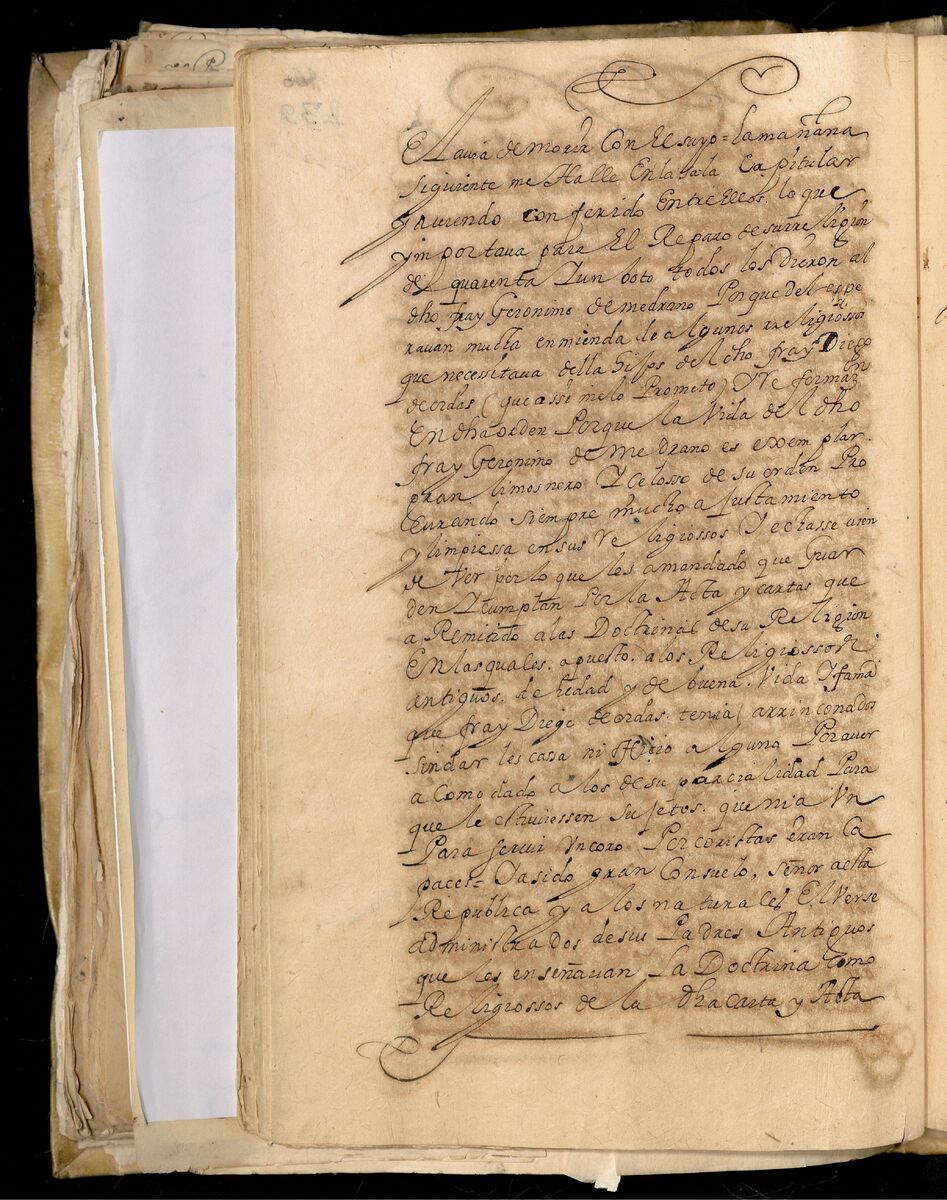 El avia de morir Con El suyo = la mañana
siguiente me Halle En la sala Capitular
y aviendo conferido Entre Ellos. lo que
ymportava para El Reparo de su rreligion
del quarenta y un boto todos los dieron al
dho fray Geronimo de medrano Porque del espe
ravan mucha enmienda de algunos rreligiossos
que necessitava della hijos del dho fray Diego
de ordas (que assi me lo Prometo) y Re formaz.on
En dha orden Porque la Vida del dho
fray Geronimo de Medrano es exemplar.
gran limosnero y celosso de su orden Pro
curando siempre mucho ajustamiento
y limpiessa en sus Religiossos y echasse vien
de Ver por lo que les a mandado que Guar
den y cumplan Por la Acta y cartas que
a Remitido a las Doctrinas de su Religion
En las quales. a puesto. a los Religiossos
antiguos. de hedad y de buena. Vida y fama
que fray Diego de ordas. tenia arrinconados
sin dar les casa ni ofisio alguno Por aver
acomodado a los de su parcialidad Para
que le estuviessen sujetos. que ni a Un
Para servir Un coro Por coristas eran Ca
paces = Ha sido gran Consuelo, señor a esta
Republica y a los naturales El Verse
administrados de sus Padres Antiguos
que les enseñavan La Doctrina como
Religiossos de la dha carta y Acta